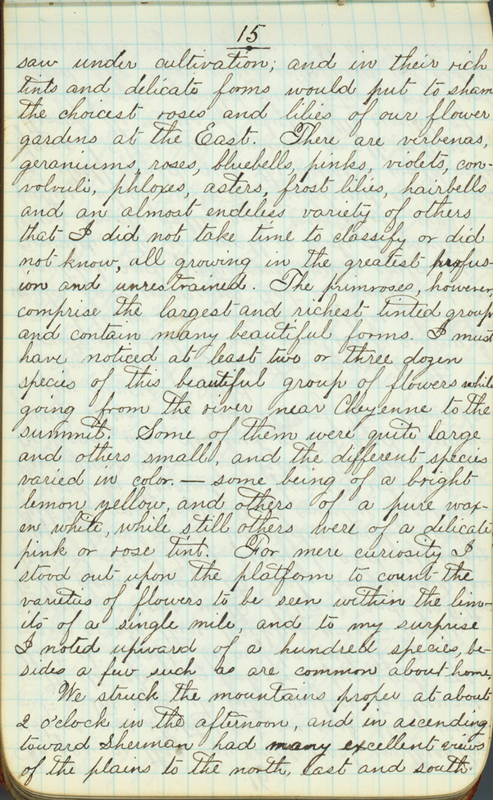 15
saw under cultivation; and in their rich
tints and delicate forms would put to sham
the choicest roses and lilies of our flower
gardens at the East. There are verbenas,
geraniums, roses, bluebells, pinks, violets, con-
volvuli, phloxes, asters, frost lilies, hairbells
and an almost endeless variety of others
that I did not take time to classify or did
not know, all growing in the greatest profus-
ion and unrestrained. The primroses, however,
comprise the largest and richest tinted group
and contain many beautiful forms. I must
have noticed at least two or three dozen
species of this beautiful group of flowers while
going from the river near Cheyenne to the
summit. Some of them were quite large
and others small, and the different species
varied in color. — some being of a bright
lemon yellow, and others of a pure wax-
en white, while still others were of a delicate
pink or rose tint. For mere curiosity I
stood out upon the platform to count the
varieties of flowers to be seen within the lim-
its of a single mile, and to my surprise
I noted upward of a hundred species, be-
sides a few such as are common about home.
We struck the mountains proper at about
2 o'clock in the afternoon, and in ascending
toward Sherman had many excellent views
of the plains to the north, east and south.